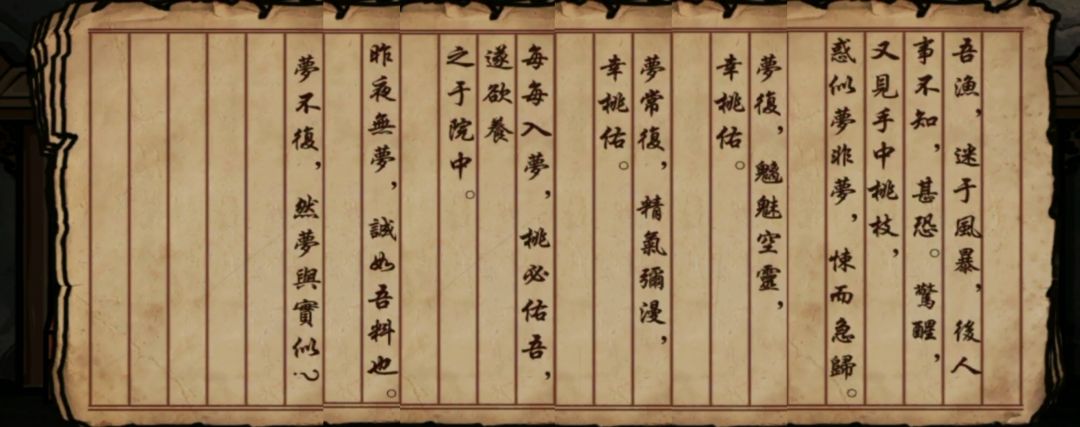 吾漁，迷于風暴，後人
事不知，甚恐。驚醒，
又見手中桃枝，
惑似夢昨夢，悚而急歸。
夢復，魑魅空靈，
幸桃佑。
夢常復，精氣彌漫，
幸桃佑。
每每入夢，桃必佑吾，
遂欲養
之于院中。
昨夜無夢，誠如吾料也。
夢不復，然夢與實似